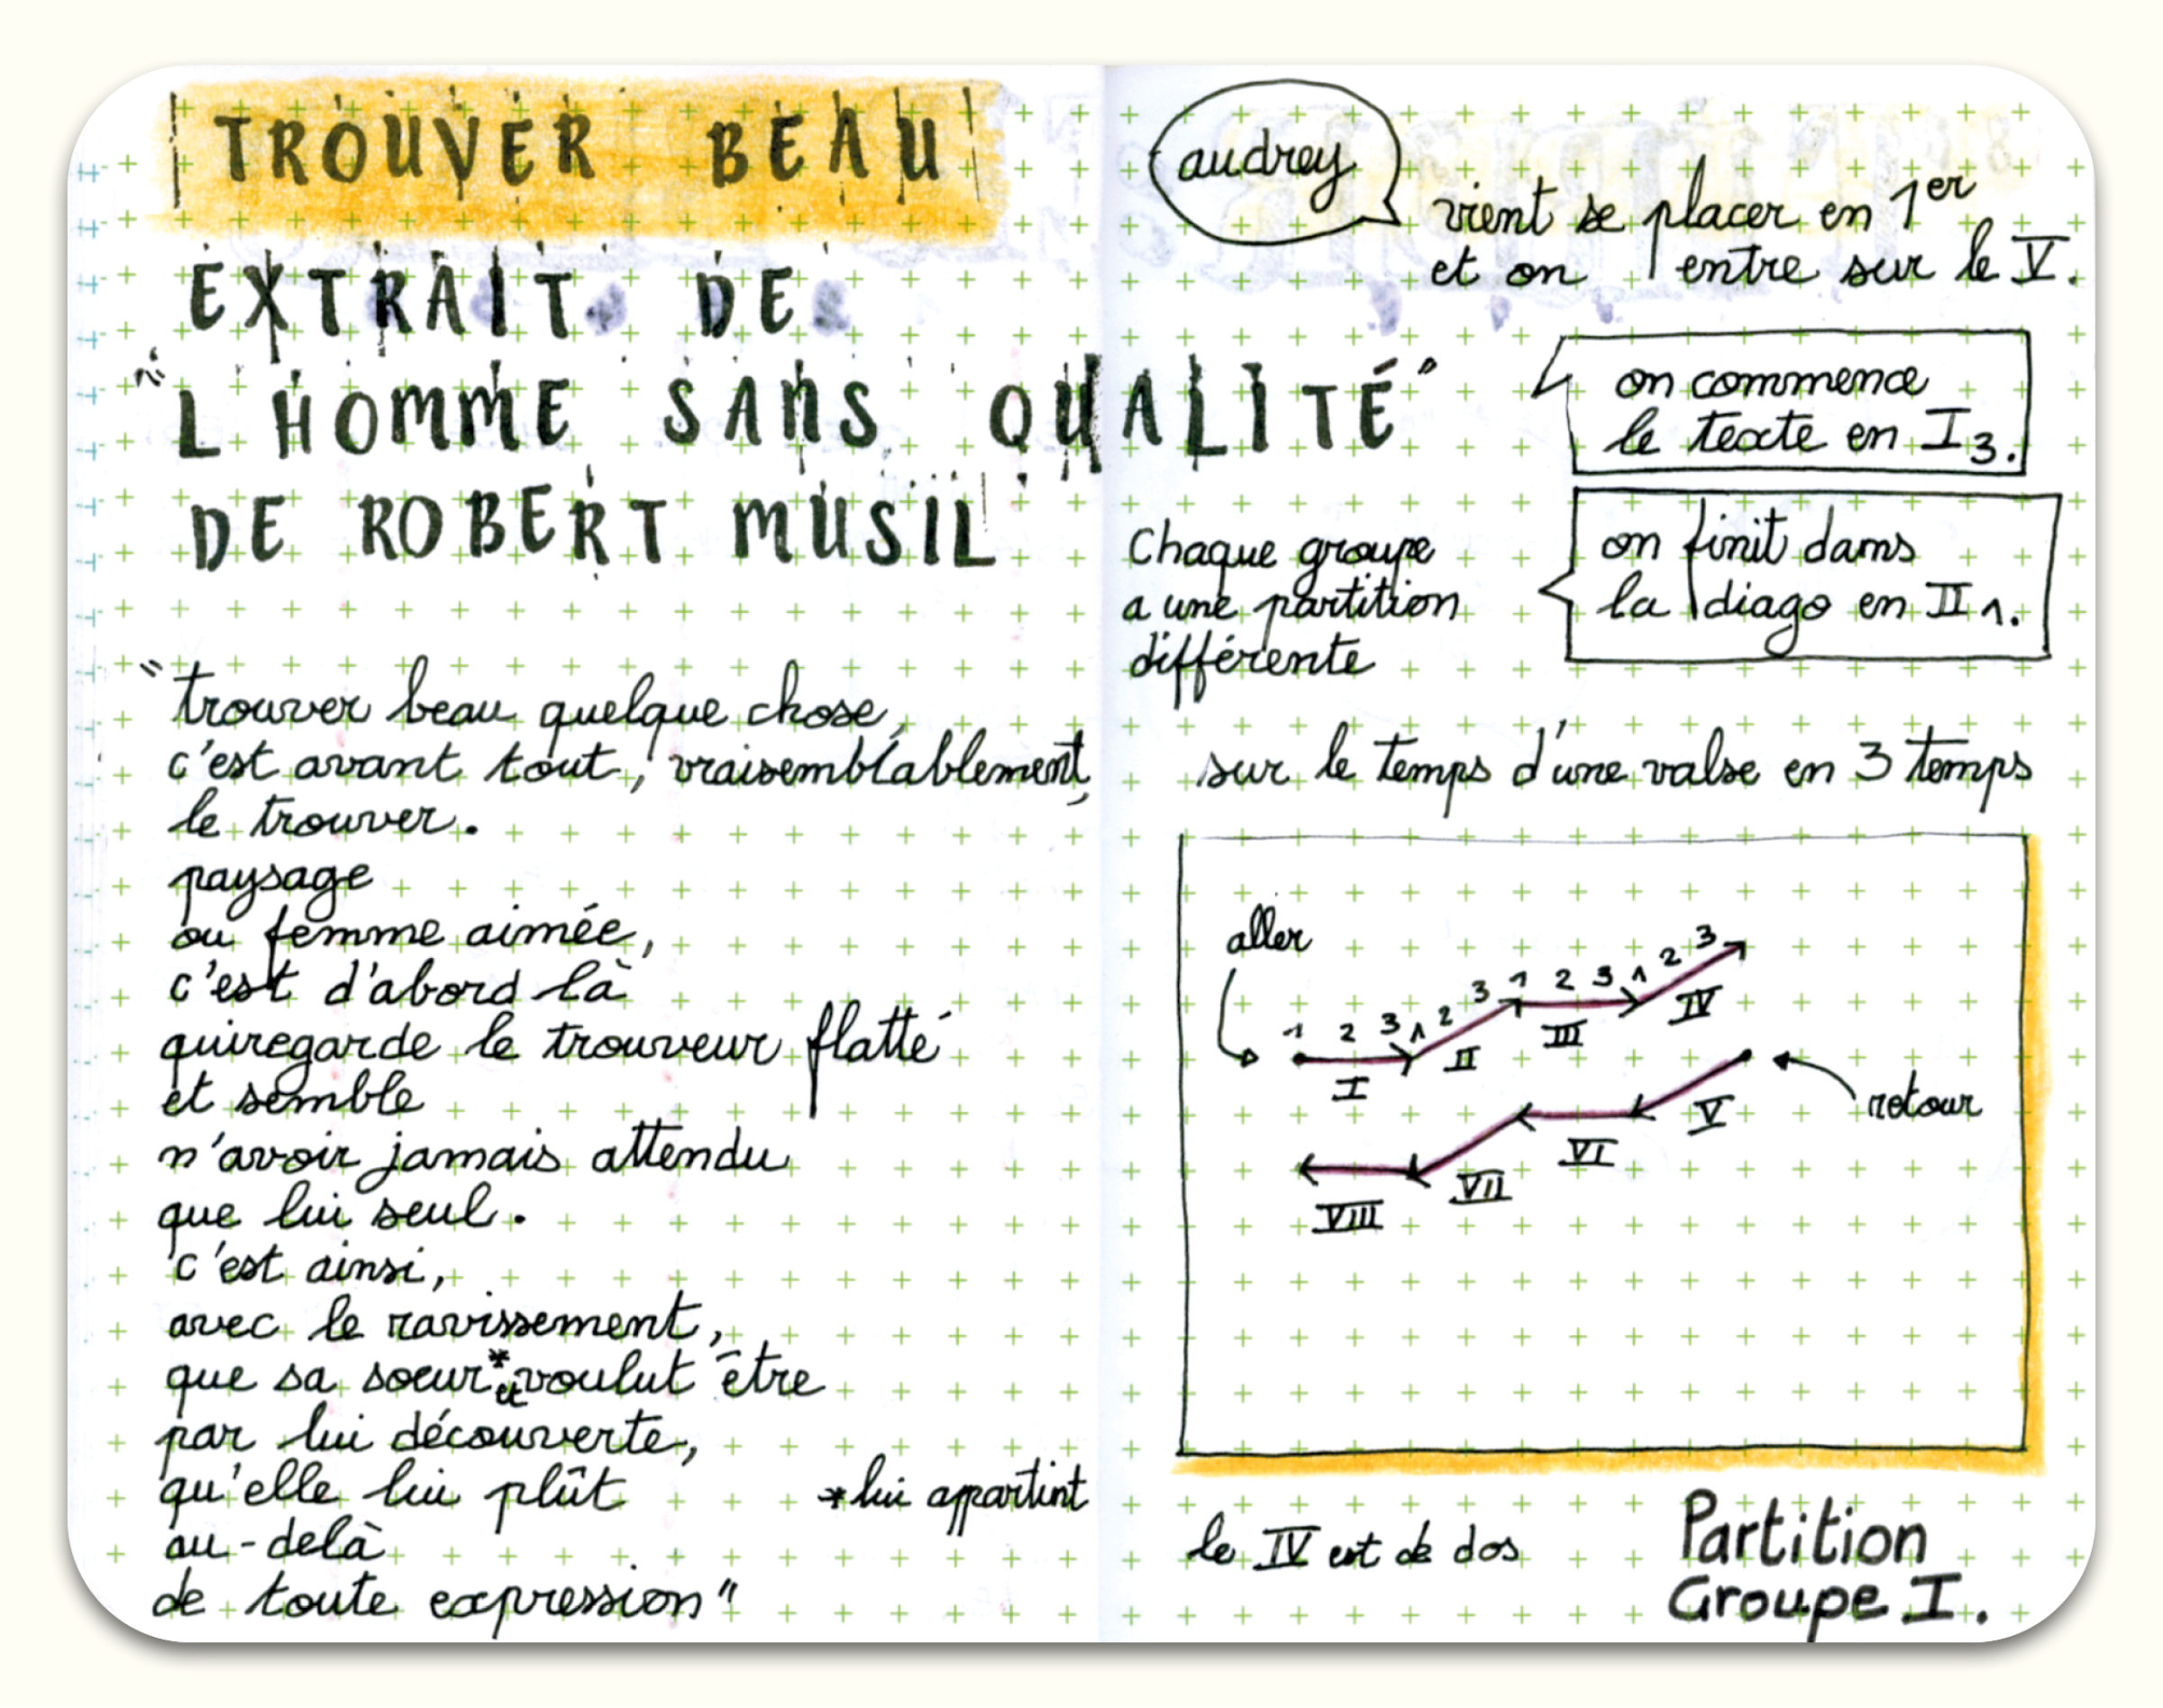 TROUVER BEAU
EXTRAIT DE
"L HOMME SANS QUALITÉ"
DE ROBERT MUSIL
"trouver beau quelque chose,
c'est avant tout, vraisemblablement,
le trouver.
paysage
ou femme aimée,
c'est d'abord là
qui regarde le trouveur flatté
et semble
n'avoir jamais attendu
que lui seul.
c'est ainsi,
avec le ravissement,
que sa sœur* et voulut être
par lui découverte,
qu'elle lui plût
au-delà
de toute expression"
*lui appartint
audrey
vient se placer en 1er
et on entre sur le V.
on commence
le texte en I3.
on finit dans
la diago en II1.
Chaque groupe
a une partition
différente
sur le temps d'une valse en 3 temps
aller
1 2 3 1 2 3 1 2 3 1 2 3
I II III IV
retour
V
VI
VII
VIII
le IV est de dos
Partition
Groupe I.